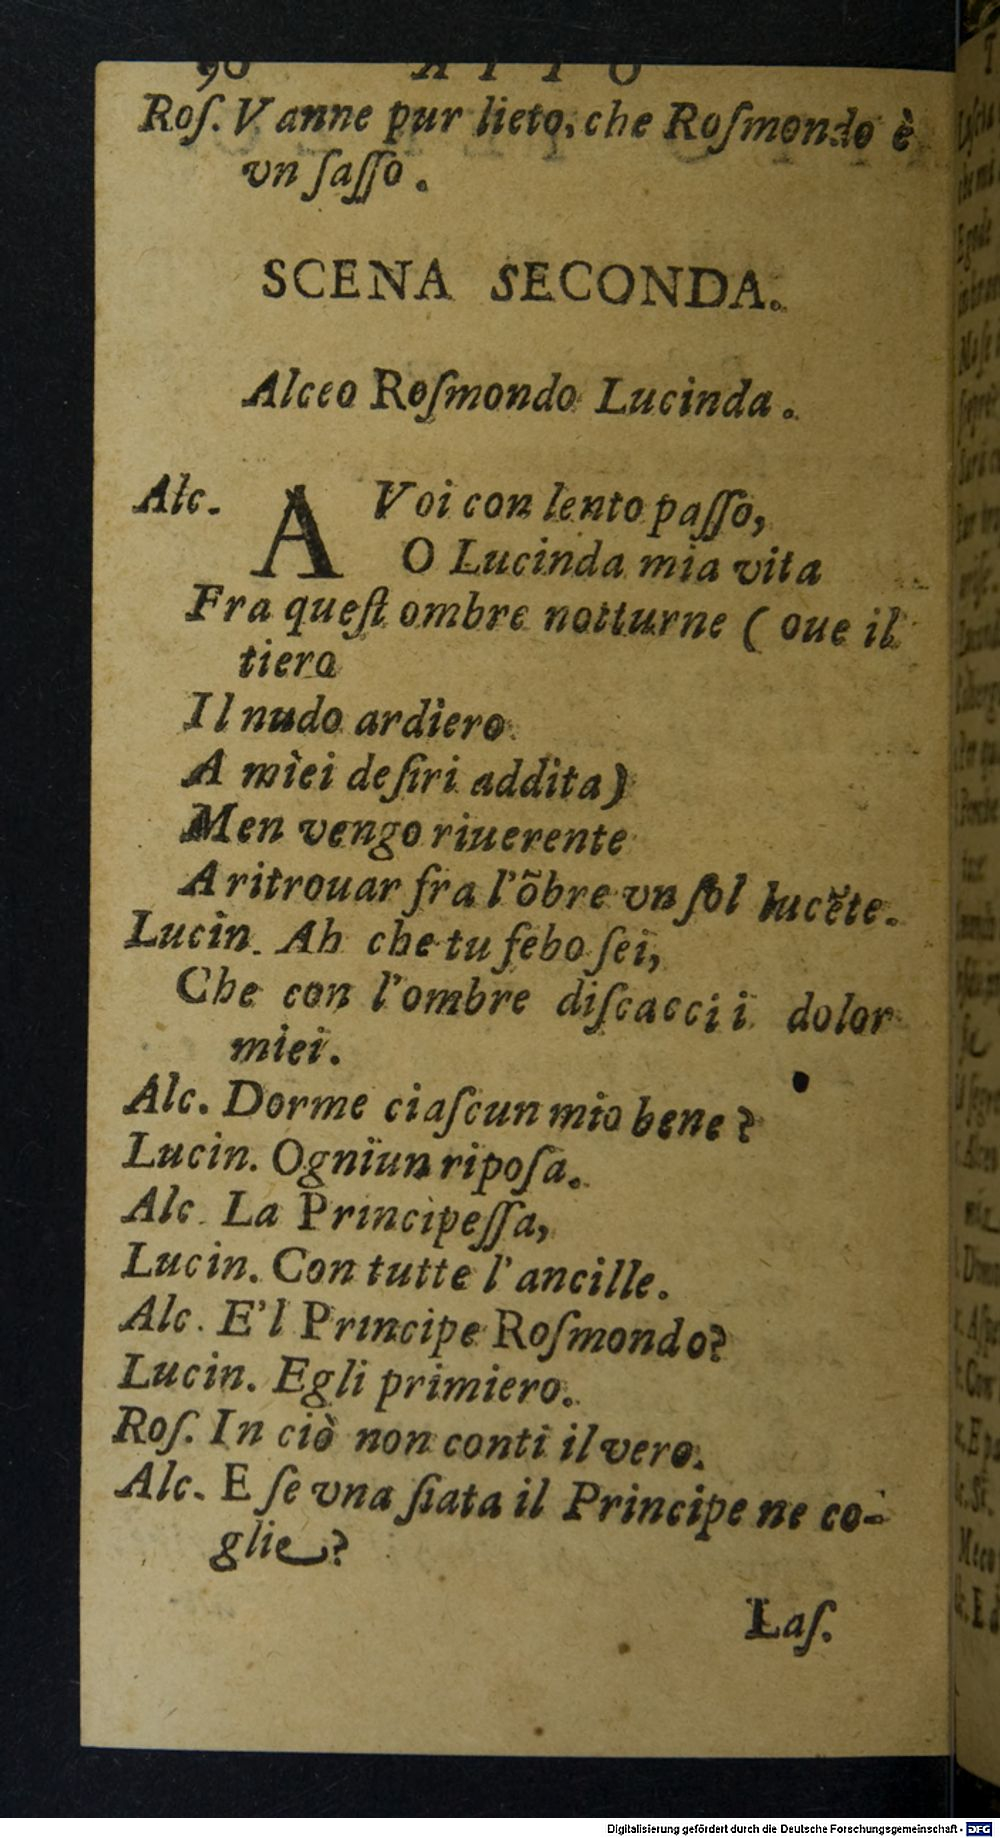 90 ATTO
Roſ. Vanne pur lieto, che Roſmondo è
vn ſaſſo.
SCENA SECONDA.
Alceo Roſmondo Lucinda.
Alc. A Voi con lento paſſo,
O Lucinda mia vita
Fra queſt ombre notturne ( oue il
tiero
Il nudo ardiero
A miei deſiri addita)
Men vengo riuerente
A ritrouar fra l'õbre vn ſol lucẽte.
Lucin. Ah che tu febo ſei,
Che con l'ombre diſcacci i dolor
miei.
Alc. Dorme ciaſcun mio bene?
Lucin. Ogniun ripoſa.
Alc. La Principeſſa,
Lucin. Con tutte l'ancille.
Alc. E'l Principe Roſmondo?
Lucin. Egli primiero.
Roſ. In ciò non conti il vero.
Alc. E ſe vna fiata il Principe ne co-
glie?
Laſ.
Digitalisierung gefördert durch die Deutsche Forschungsgemeinschaft - DFG